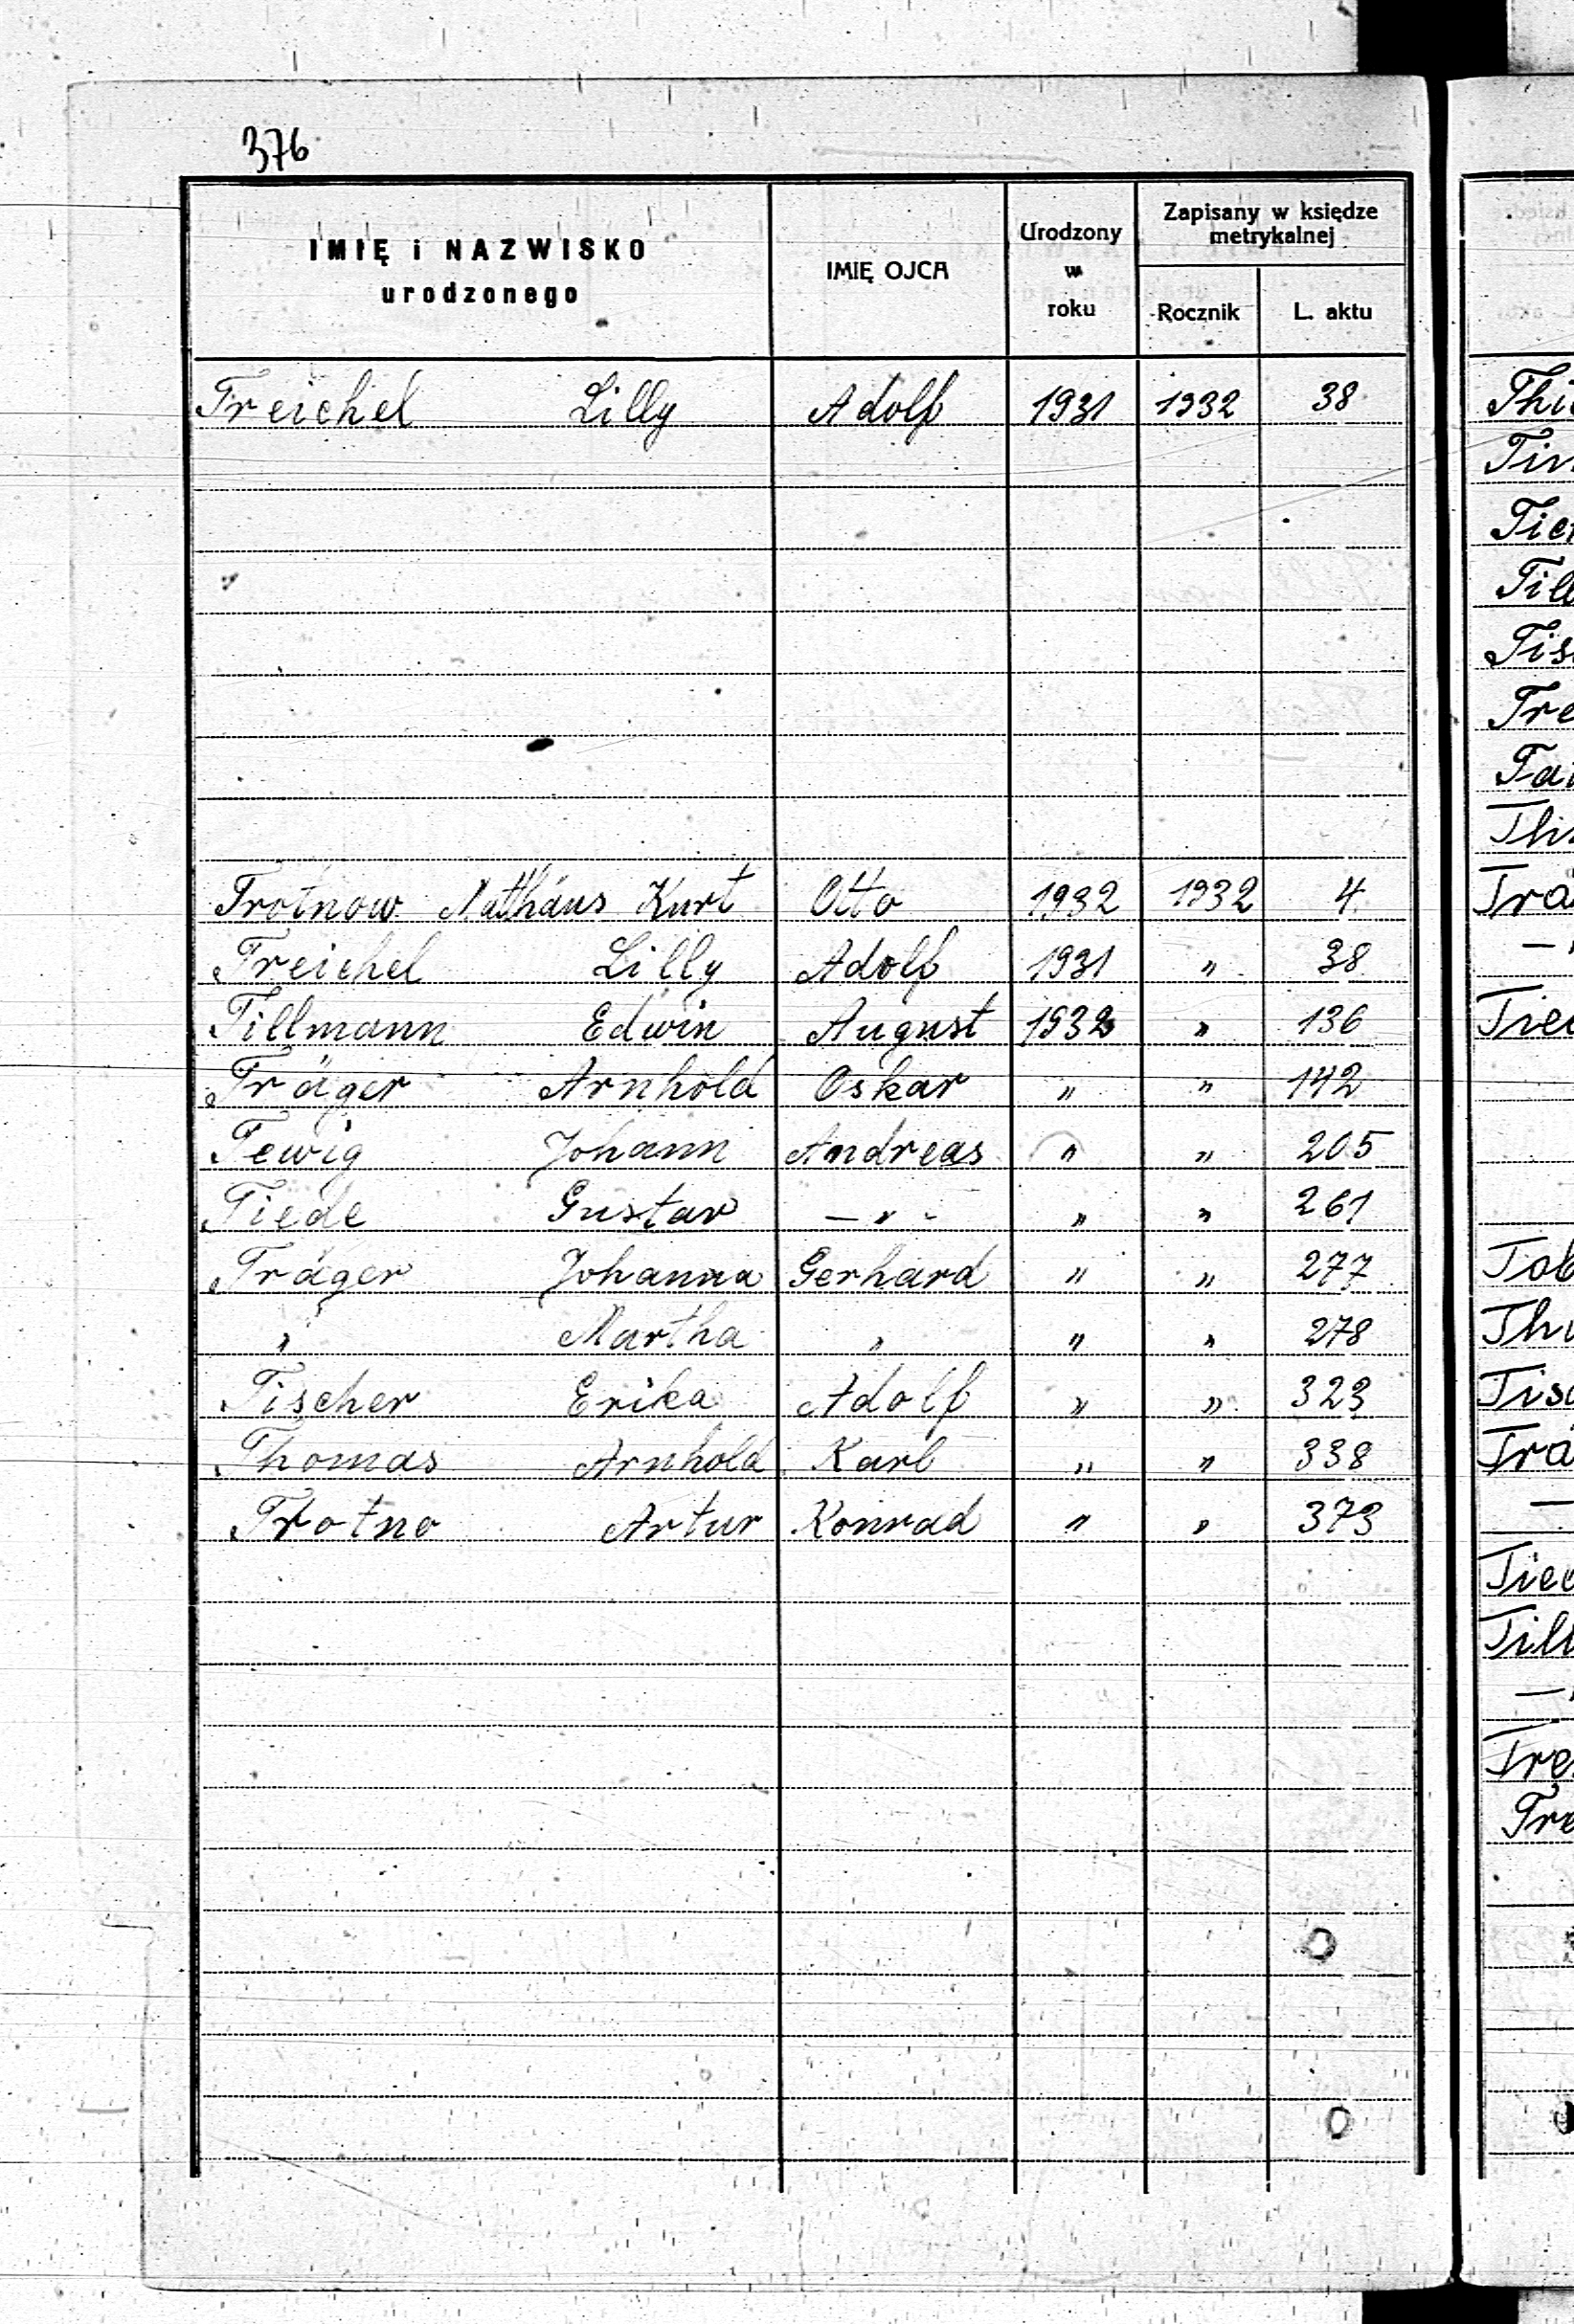 376
IMIĘ i NAZWISKO urodzonego IMIĘ OJCA Urodzony w roku Zapisany w księdze metrykalnej Rocznik L. aktu
Treichel Lilly Adolf 1931 1932 38
Trotnow Matthäus Kurt Otto 1932 1932 4
Treichel Lilly Adolf 1931 " 38
Tillmann Edwin August 1932 " 136
Träger Arnhold Oskar " " 142
Tewig Johann Andreas " " 205
Tiede Gustav — " - " " 261
Träger Johanna Gerhard " " 277
" Martha " " " 278
Tischer Erika Adolf " " 323
Thomas Arnhold Karl " " 338
Trotno Artur Konrad " " 373